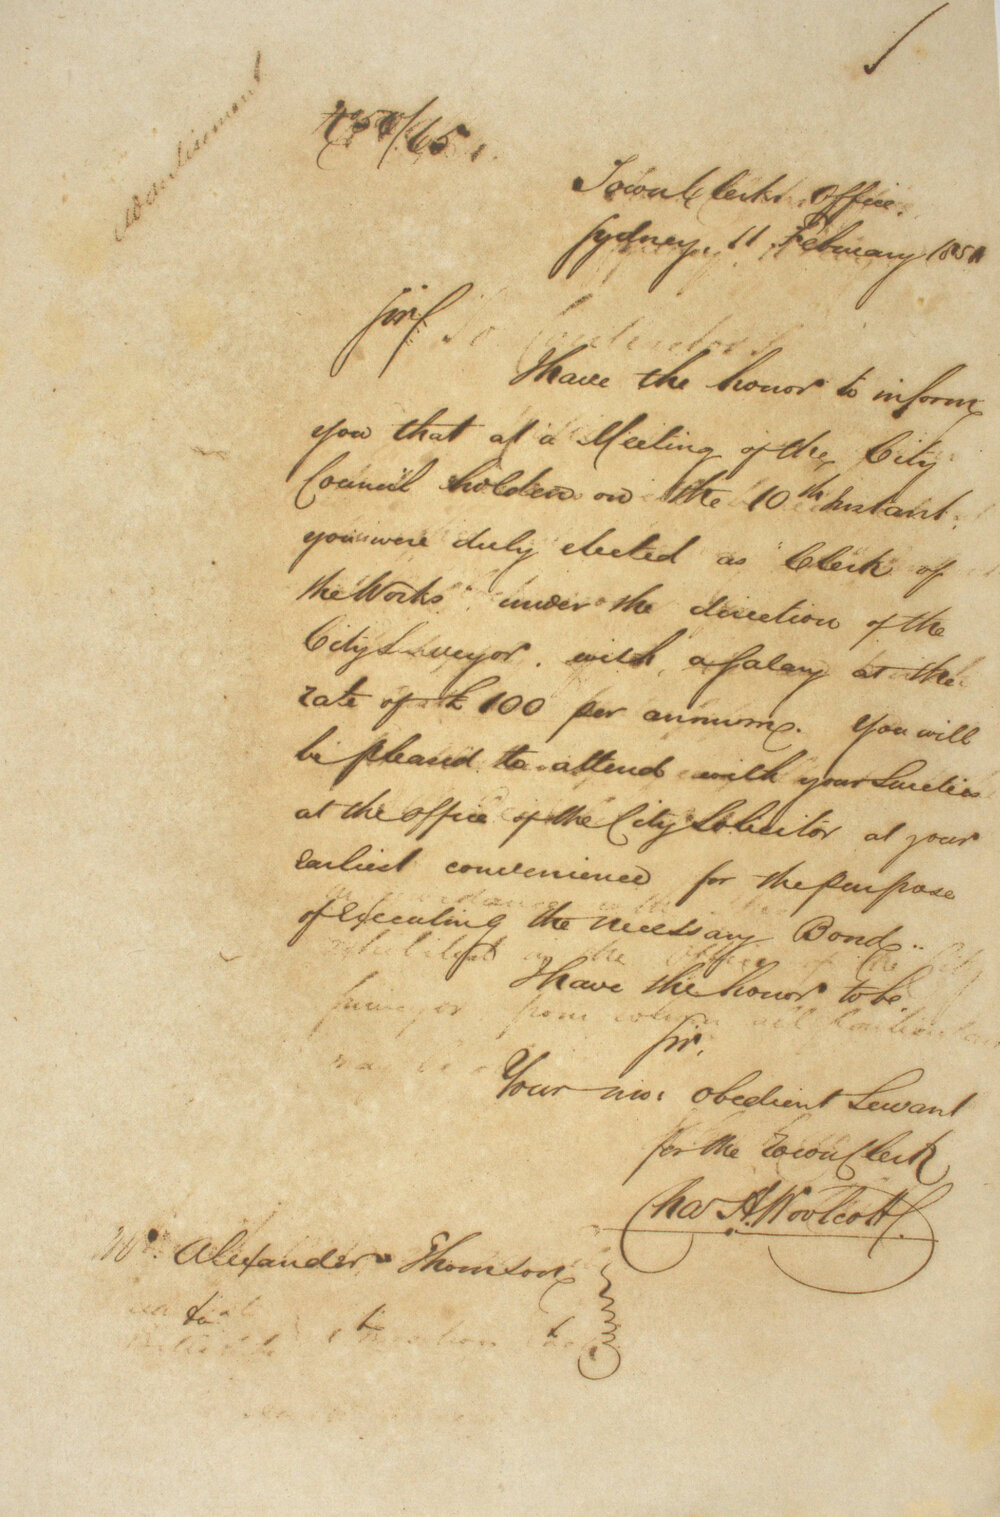 Advertisement
Town Clerks Office.
Sydney, 11 February 1851
Sir
To Contractors
I have the honor to inform
you that at a Meeting of the City
Council holden on the 10th Instant
you were duly elected as "Clerk of
the Works" under the direction of the
City Surveyor. with a Salary at the
rate of £100 per annum. You will
be pleased to attend with your Sureties
at the office of the City Solicitor at your
earliest convenience for the purpose
of Executing the necessary Bond..
I have the honor to be.
Sir,
Your mo: obedient Servant
for the Town Clerk
Chas H. Woolcott
Mr. Alexander Thomson